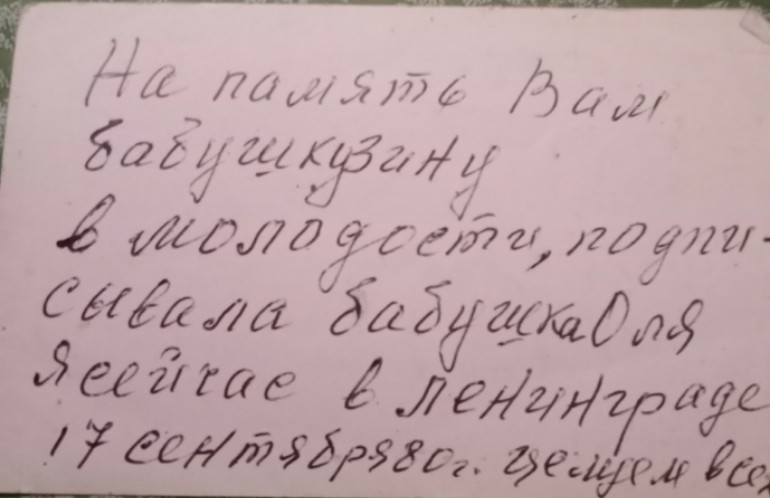 На память Вам
бабушку Зину
в молодости, подпи-
сывала бабушка Оля
я сейчас в Ленинграде
17 сентября 80 г. целуем всех